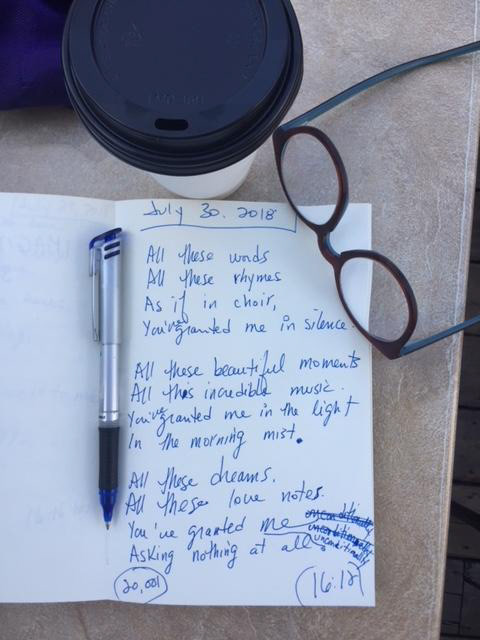 July 30. 2018
All these words
All these rhymes
As if in choir,
You've granted me in silence.
All these beautiful moments
All this incredible music.
You've granted me in the light
In the morning mist.
All these dreams.
All these love notes.
You've granted me unconditionally
Asking nothing at all.
20,001
16:12